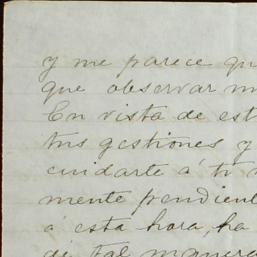 y me parece qu
que observar m
En vista de est
tus gestiones y
cuidarte á tu
mente pendient
á esta hora, ha
de tal manera